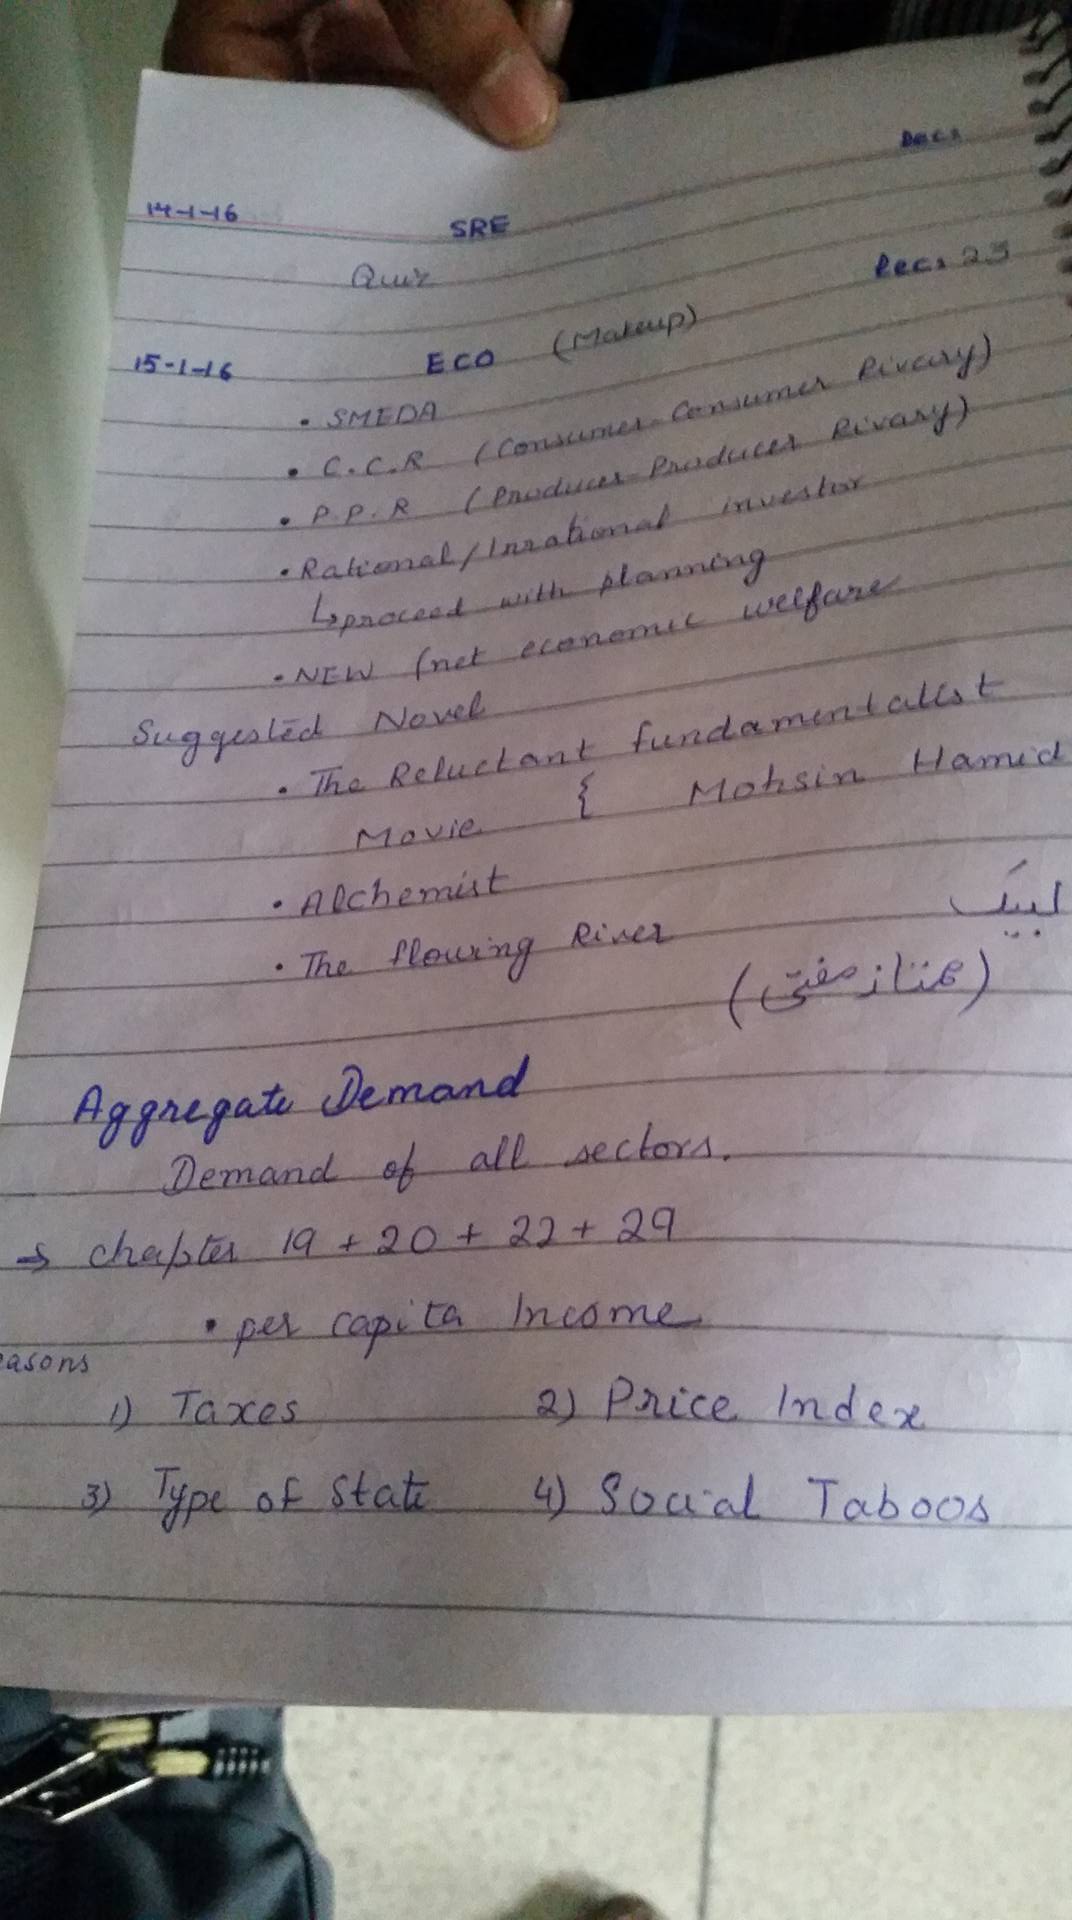 14-1-16 SRE
Quiz
15-1-16 ECO (Makeup)
• SMEDA
• C.C.R (Consumer-Consumer Rivary)
• P.P.R (Producer-Producer Rivary)
• Rational/Inrational investor
↳proceed with planning
• NEW (net economic welfare
Suggested Novel
• The Reluctant fundamentalist
Movie { Mohsin Hamid
• Alchemist
• The flowing River لبیک
(ممتاز مفتی)
Aggregate Demand
Demand of all sectors.
→ Chapter 19 + 20 + 22 + 29
• per capita Income
easons
1) Taxes 2) Price Index
3) Type of State 4) Social Taboos